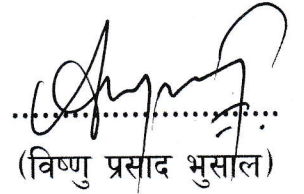 (विष्णु प्रसाद भुसाल)